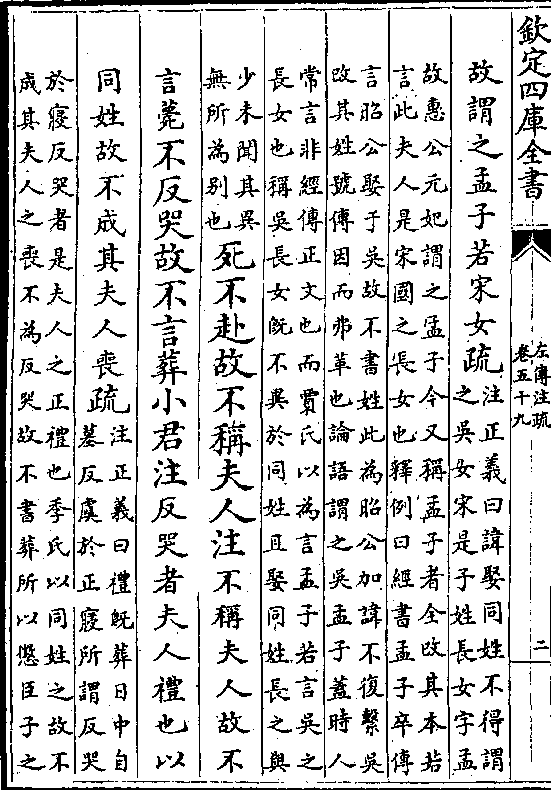 欽定四庫全書
左傳注疏
卷五十九
二
故謂之孟子若宋女疏
注正義曰諱娶同姓不得謂
之吳女宋是子姓長女字孟
故惠公元妃謂之孟子今又稱孟子者全改其本若
言此夫人是宋國之長女也釋例曰經書孟子卒傳
言昭公娶于吳故不書姓此為昭公加諱不復繫吳
改其姓號傳因而弗革也論語謂之吳孟子蓋時人
常言非經傳正文也而賈氏以為言孟子若言吳之
長女也稱吳長女既不異於同姓且娶同姓長之與
少未聞其異
無所為別也
死不赴故不稱夫人注不稱夫人故不
言薨不反哭故不言葬小君注反哭者夫人禮也以
同姓故不成其夫人喪疏
注正義曰禮既葬日中自
墓反虞於正寢所謂反哭
於寢反哭者是夫人之正禮也季氏以同姓之故不
成其夫人之喪不為反哭故不書葬所以懲臣子之